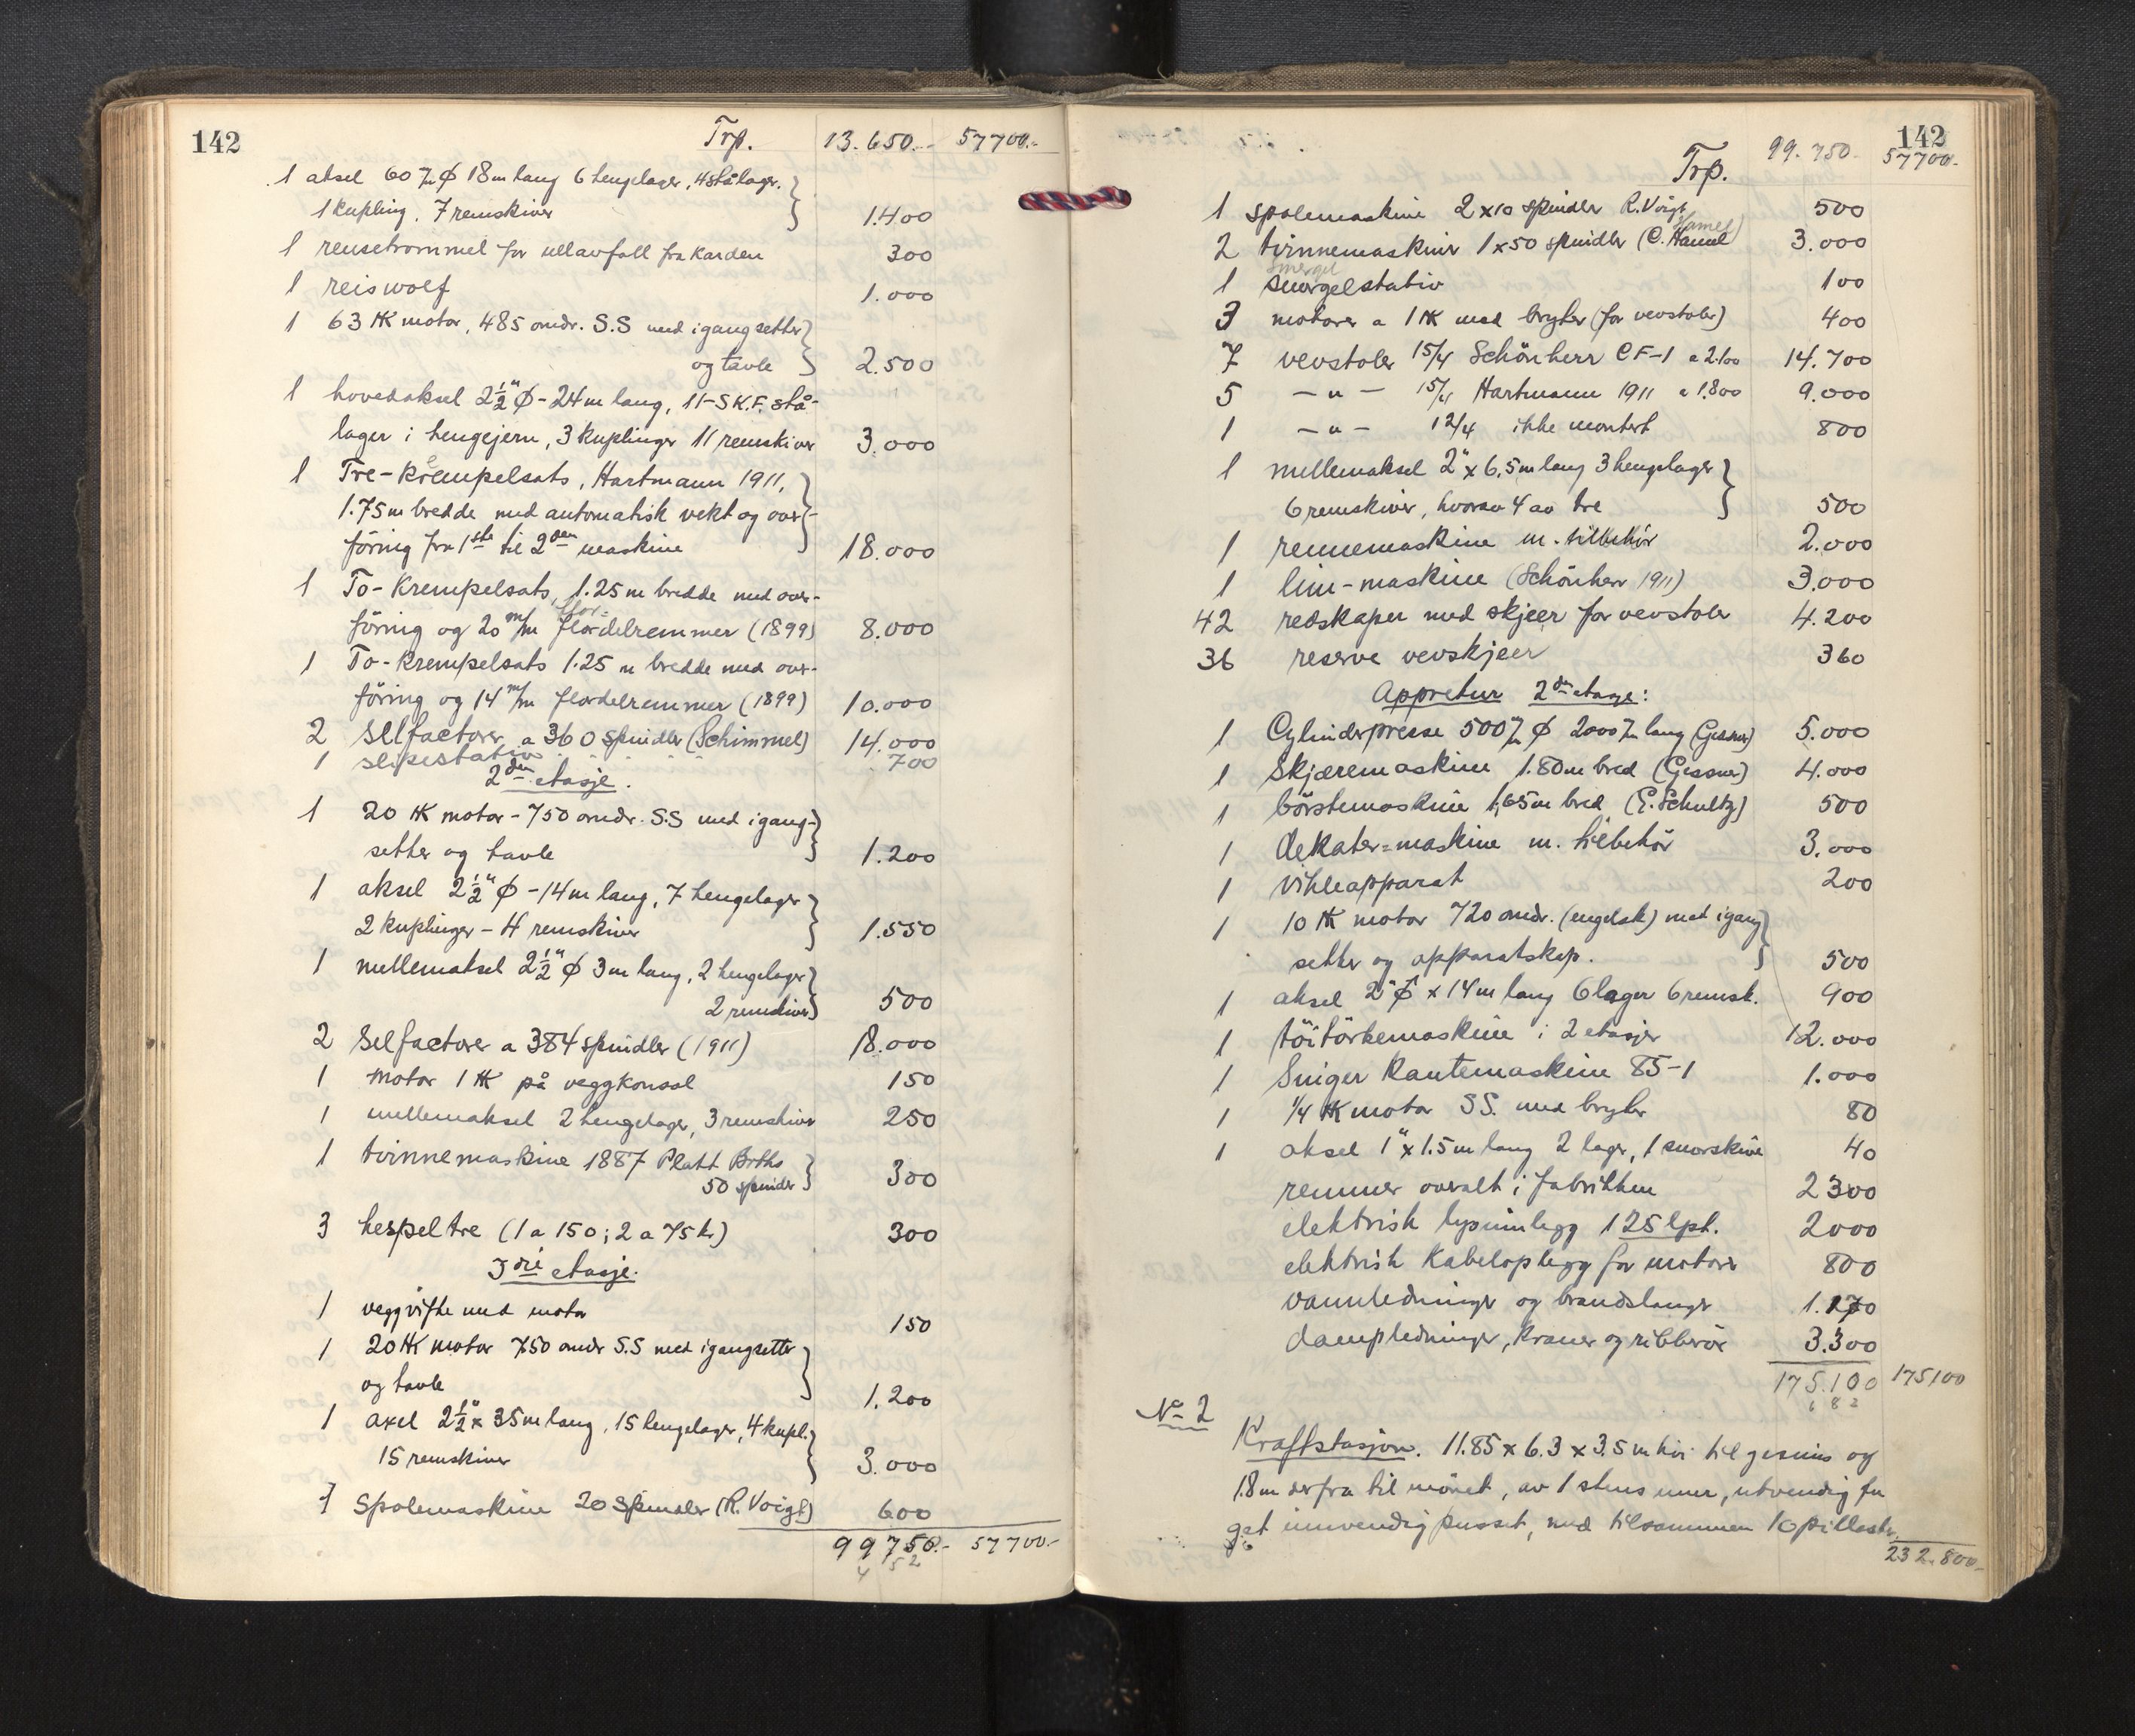 142 Trp. 13.650.- 57700.-
1 aksel 60 m/m Ø 18m lang 6 hengelager, 4 stålager.
1 kupling, 7 remskiver 1.400
1 rensetrommel for ullavfall fra karden 300
1 reiswolf 1.000
1 63 HK motor, 485 omdr. S.S med igangsetter
og tavle 2.500
1 hovedaksel 2½" Ø - 24m lang, 11-S.K.F. stå-
lager i hengejern, 3 kuplinger 11 remskiver 3.000
1 Tre-krempelsats, Hartmann 1911,
1.75m bredde med automatisk vekt og over-
föring fra 1ste til 2den maskine 18.000
1 To-Krempelsats, 1.25m bredde med over-
föring og 20 m/m flordelremmer (1899) 8.000
1 To-Krempelsats 1.25 m bredde med over-
föring og 14 m/m flordelremmer (1899) 10.000
2 Selfactorer a 360 spindler (Schimmel) 14.000
1 slipestativ 700
2den etasje.
1 20 HK motor - 750 omdr. S.S med igang-
setter og tavle 1.200
1 aksel 2½" Ø - 14m lang, 7 hengelager
2 kuplinger - 4 remskiver 1.550
1 mellemaksel 2½" Ø 3m lang, 2 hengelager
2 remskiver 500
2 Selfactorer a 384 spindler (1911) 18.000
1 motor 1 HK på veggkonsol 150
1 mellemaksel 2 hengelager, 3 remskiver 250
1 tvinnemaskine 1887 Platt Broths
50 spindler 300
3 hespeltre (1 a 150; 2 a 75 kr) 300
3die etasje.
1 veggvifte med motor 150
1 20 HK motor 750 omdr S.S med igangsetter
og tavle 1.200
1 axel 2½" x 35m lang, 15 hengelager, 4 kupl.
15 remskiver 3.000
1 Spolemaskine 20 spindler (R. Voigt) 600
99750.- 57700.-
4 52
142
Trp. 99.750.- 57700.-
1 spolemaskine 2x10 spindler R. Voigt 500
Hamel)
2 tvinnemaskiner 1x50 spindler (C. Hamel 3.000
Smergel
1 smergelstativ 100
3 motorer a 1 HK med bryter (for vevstoler) 400
7 vevstoler 15/4 Schönherr CF-1 a 2.100 14.700
5 - " - 15/4 Hartmann 1911 a 1.800 9.000
1 - " - 12/4 ikke montert 800
1 mellemaksel 2" x 6.5m lang 3 hengelager
6 remskiver, hvorav 4 av tre 500
1 rennemaskine m. tilbehör 2.000
1 lim-maskine (Schönherr 1911) 3.000
42 redskaper med skjeer for vevstoler 4.200
36 reserve vevskjeer 360
Appretur 2den etasje:
1 Cylinderpresse 500 m/m Ø 2000 m/m lang (Gessner) 5.000
1 Skjæremaskine 1.80m bred (Gessner) 4.000
1 börstemaskine 1,65m bred (E. Schultz) 500
1 dekater=maskine m. tilbehör 3.000
1 vikleapparat 200
1 10 HK motor 720 omdr. (engelsk) med igang
setter og apparatskap. 500
1 aksel 2" Ø x 14m lang 6 lager 6 remsk. 900
1 töitörkemaskine i 2 etasjer 12.000
1 Singer Kantemaskine 85-1 1.000
1 1/4 HK motor SS. med bryter 80
1 aksel 1" x 1.5m lang 2 lager, 1 snorskive 40
remmer overalt i fabrikken 2300
elektrisk lysinnlegg 125 lpt. 2000
elektrisk kabelopplegg for motorer 800
vannledninger og brandslanger 1.170
dampledninger, kraner og ribberör 3.300
175.100 175100
6 8 2
No 2
Kraftstasjon. 11.85 x 6.3 x 3.5m höi til gesims og
1.8m derfra til mönet, av 1 stens mur, utvendig fu
get innvendig pusset, med tilsammen 10 pillastr.
232.800.-